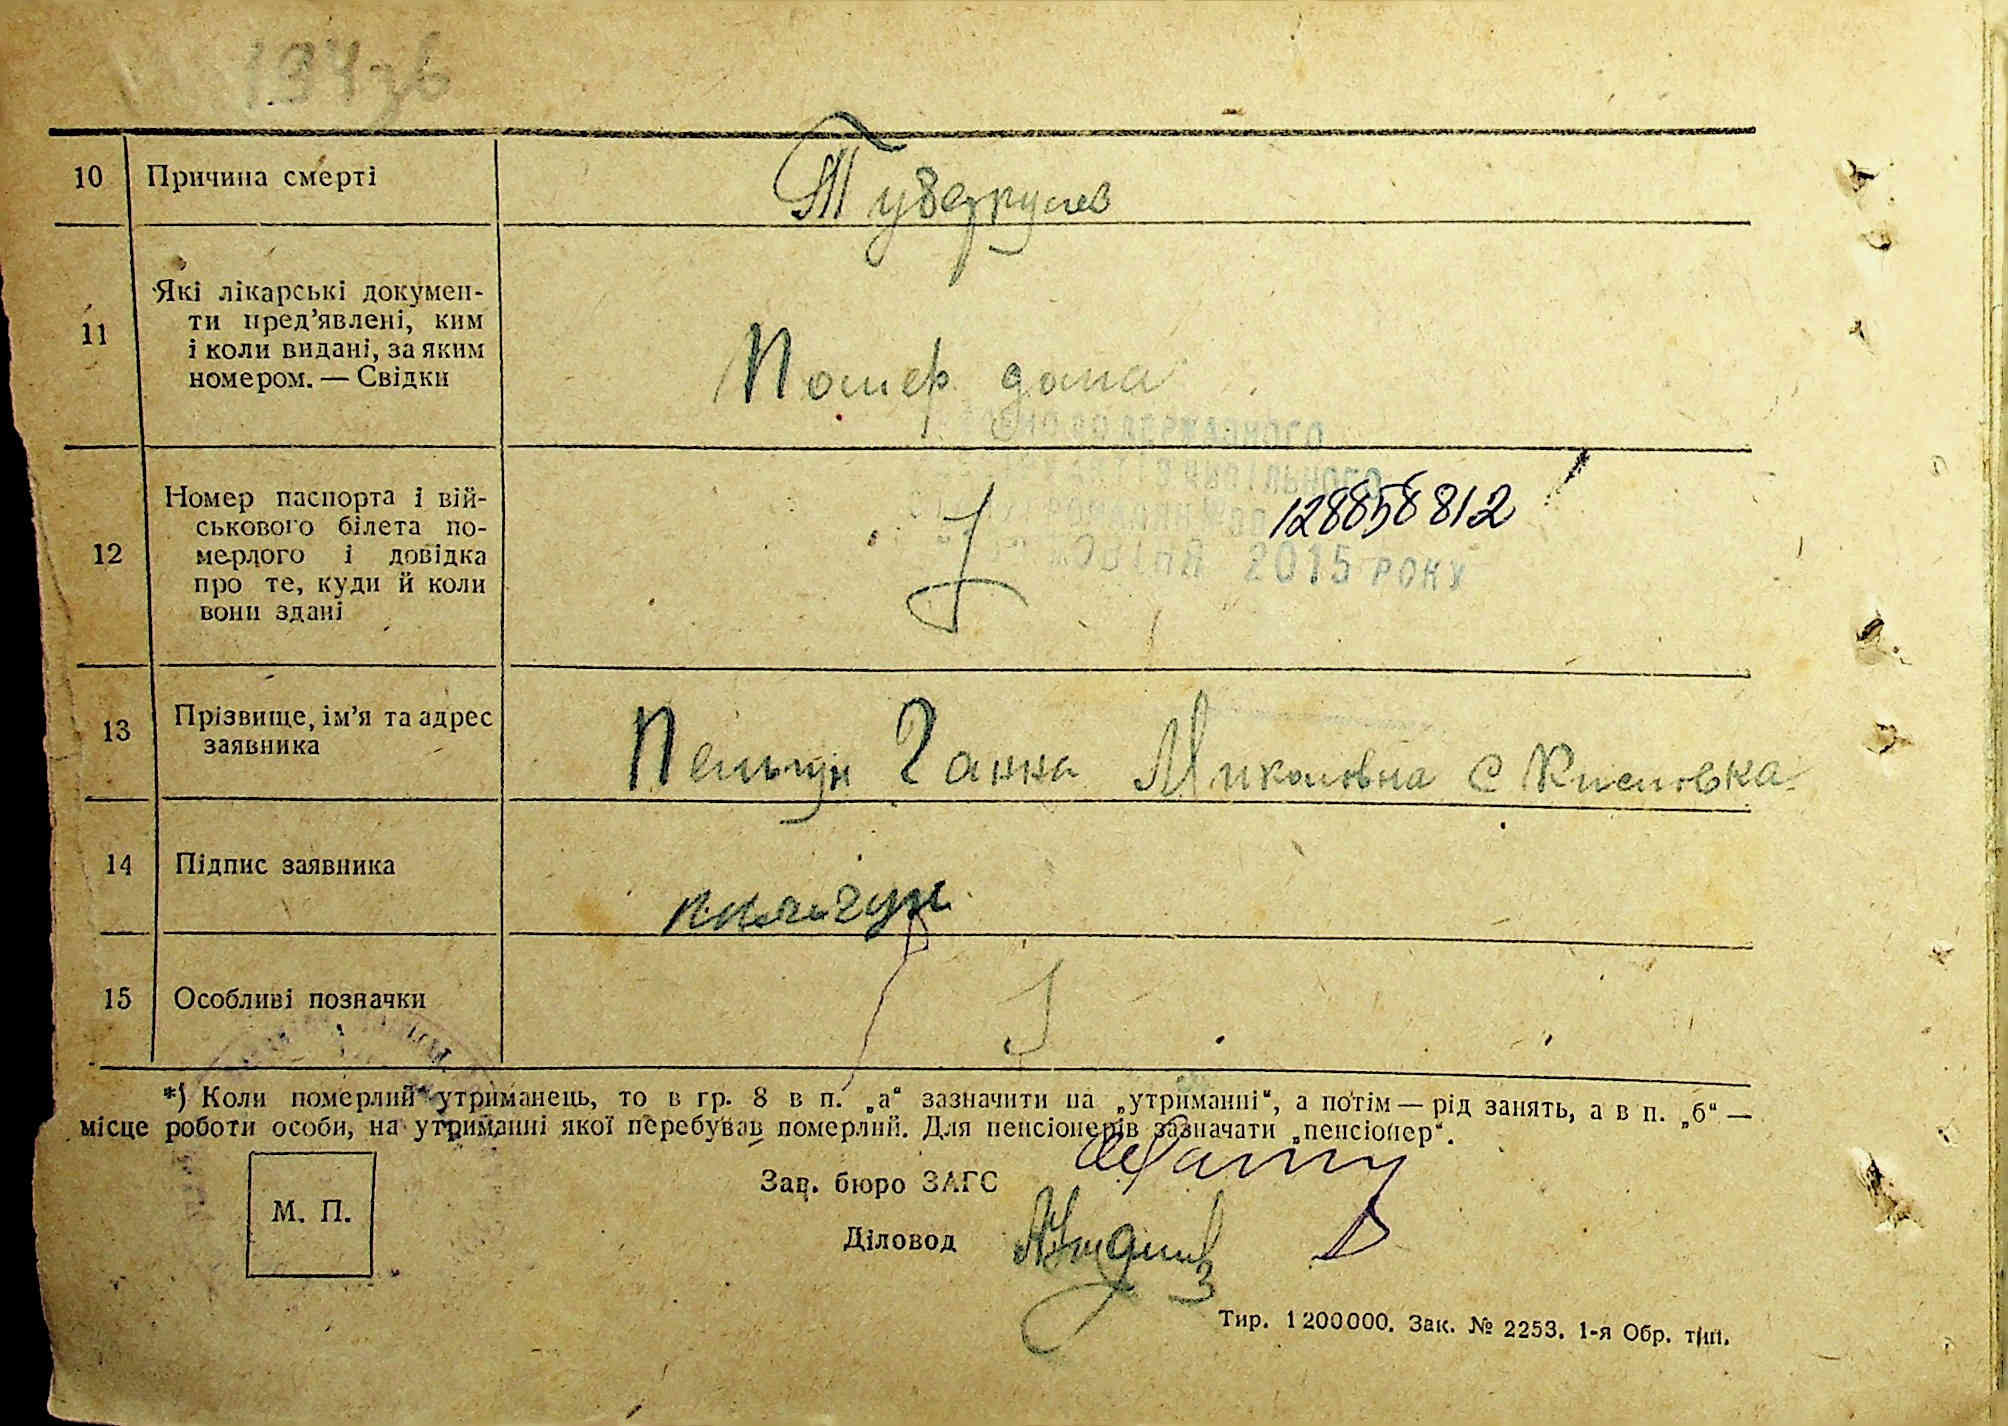 10 Причина смерті
Туберкулев
11 Які лікарські докумен-
ти пред’явлені, ким
і коли видані, за яким
номером. — Свідки
Помер дома
ДЕРЖАВНОГО
12 Номер паспорта і вій-
ськового білета по-
мерлого і довідка
про те, куди й коли
вони здані
128858812
2015 РОКУ
13 Прізвище, ім’я та адрес
заявника
Ганна Миколовна с Кисловка
14 Підпис заявника
15 Особливі позначки
*) Коли померлий утриманець, то в гр. 8 в п. „а“ зазначити на „утриманні“, а потім — рід занять, а в п. „б“ —
місце роботи особи, на утриманні якої перебував померлий. Для пенсіонерів зазначати „пенсіонер“.
Зав. бюро ЗАГС
М. П.
Діловод
Тир. 1200000. Зак. № 2253. 1-я Обр. тип.